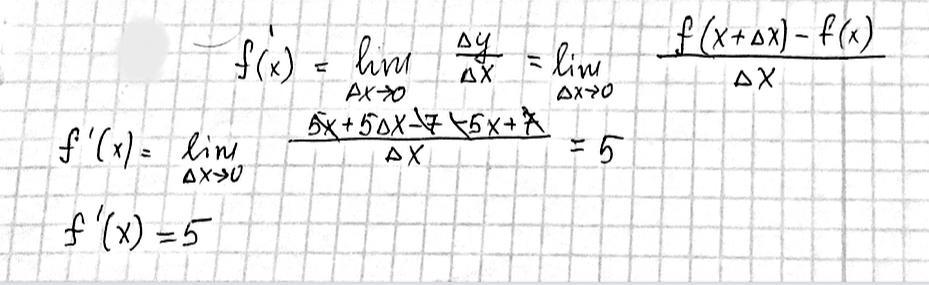 f'(x) = lim Δx→0 Δy/Δx = lim Δx→0 (f(x+Δx) - f(x))/Δx
f'(x) = lim Δx→0 (5x+5Δx-7-5x+7)/Δx = 5
f'(x) = 5